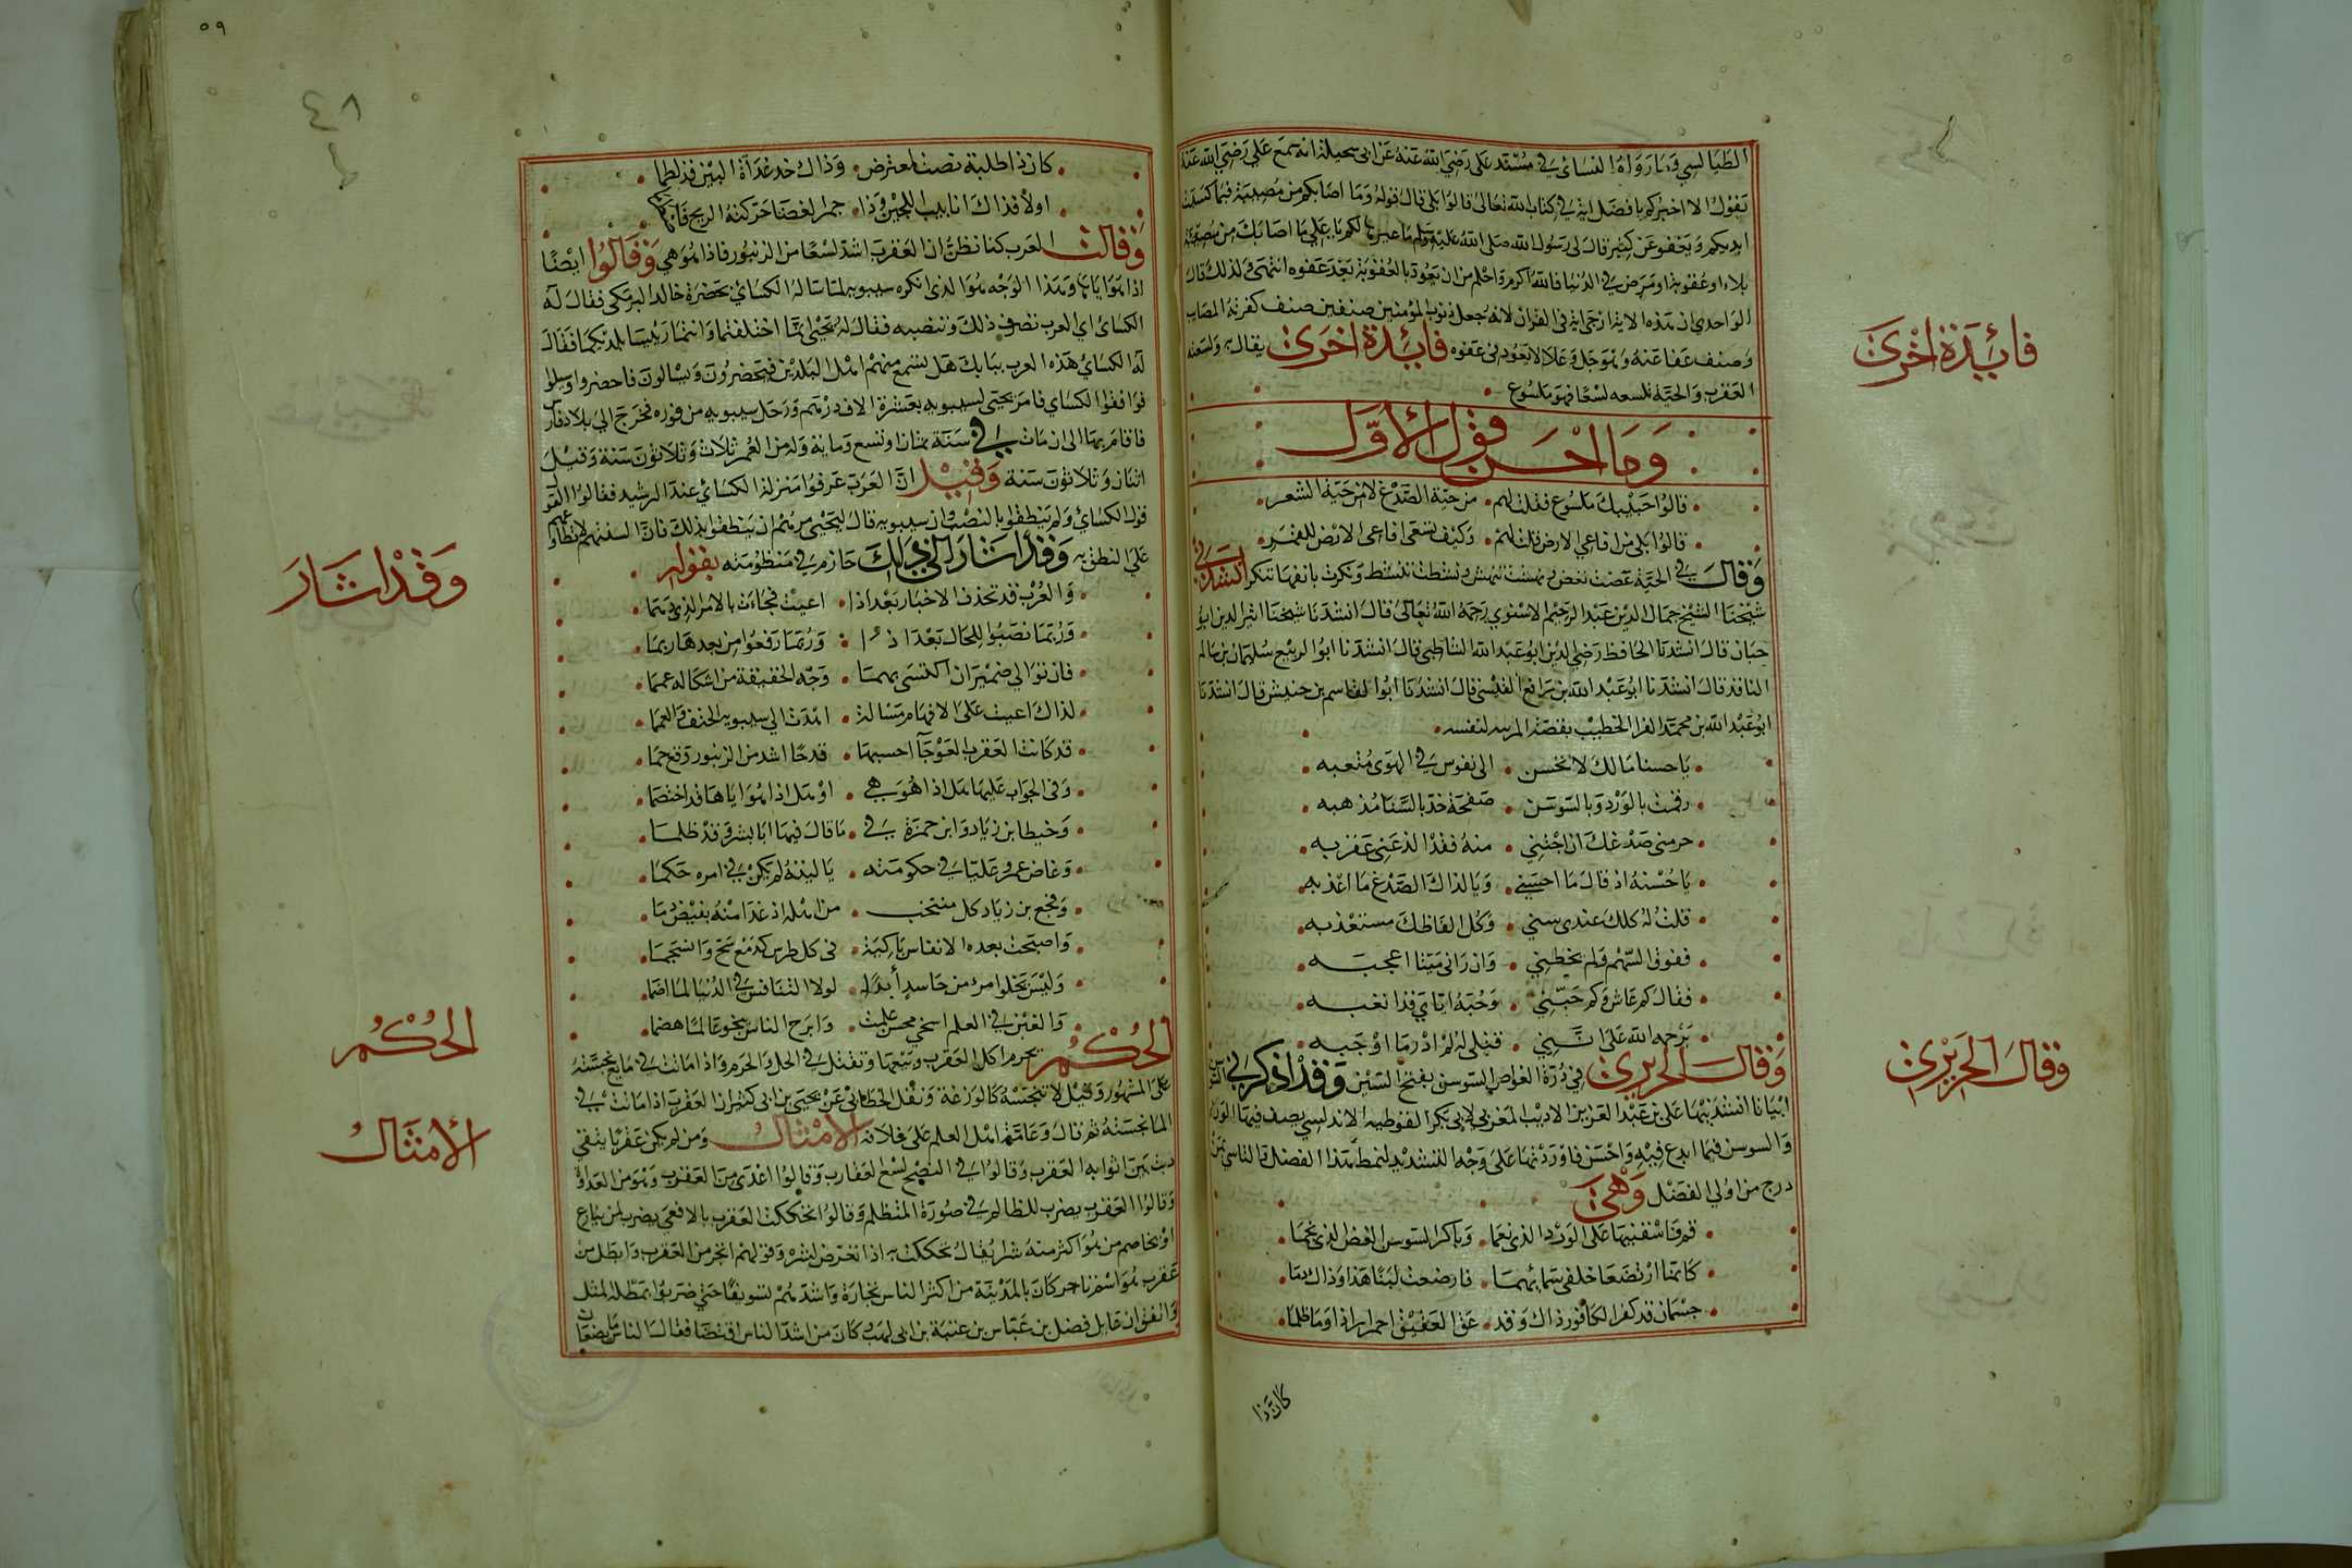 الطيالسي وما رواه النسائي في مسند علي رضي الله عنه عن ابي سحيلة انه سمع علي رضي الله عنه
يقول الا اخبركم بافضل اية في كتاب الله تعالى قالوا بلى قال قوله وما اصابكم من مصيبة فبما كسبت
ايديكم ويعفو عن كثير قال لي رسول الله صلى الله عليه وسلم لكم يا علي ما اصابك من مصيبة
بلاء او عقوبة او مرض في الدنيا فالله اكرم واحلم من ان يعود بالعقوبة بعد عفوه انتهى ولذلك قال
الواحدي ان هذه الاية ارجى اية في القران لانه جعل ذنوب المؤمنين صنفين صنف كفرته المصائب
وصنف عفا عنه وهو جل وعلا لا يعود في عفوه فائدة اخرى يقال ولسعته
العقرب والحية تلسعه لسعا فهو ملسوع
وما احسن قول الاول
قالوا حبيبك ملسوع فقلت لهم من حية الصدغ لا من حية الشعر
قالوا بلى من افاعي الارض قلت لهم وكيف تسعى افاعي الارض للقمر
وقال في الحية عضت تعض ونهشت تنهش ونشطت تنشط ونكزت بانفها تنكز انشدني
شيخنا الشيخ جمال الدين عبد الرحيم الاسنوي رحمه الله تعالى قال انشدنا شيخنا اثير الدين ابو
حيان قال انشدنا الحافظ رضي الدين ابو عبد الله الشاطبي قال انشدنا ابو الربيع سليمان بن سالم
الناقد قال انشدنا ابو عبد الله بن رافع القيسي قال انشدنا ابو القاسم بن حنيش قال انشدنا
ابو عبد الله بن محمد الفرا الخطيب بقصة المريه لنفسه
يا حسنا مالك لا تحسن الى نفوس في الهوى متعبه
رقمت بالورد وبالسوسن صفحة خد بالسنا مذهبه
حرمني صدغك ان اجتني منه فقد الذعني عقربه
يا حسنه اذ قال ما احسني ويا لذاك الصدغ ما اعذبه
قلت له كلك عندي سني وكل الفاظك مستعذبه
ففوق السهم ولم يخطيني وان راني ميتا اعجبه
فقال كم عاش وكم حبني وحبه اياي قد اتعبه
يرحمه الله على انني قتلي له لم ادر ما اوجبه
وقال الحريري في درة الغواص السوسن بفتح السين وقد اذكرني
ابياتا انشدنيها علي بن عبد العزيز الاديب المغربي لابي بكر القوطية الاندلسي يصف فيها الورد
والسوسن فيما ابدع فيه واحسن فاوردتها على وجه التشديد لنمط هذا الفصل
درج من اولي الفضل وهي
قم فاسقنيها على الورد الذي نعما وباكر السوسن الغض الذي نجما
كانما ارتضعا خلفي سمائهما فارضعت لبنا هذا وذاك دما
جسمان قد كفر الكافور ذاك وقد عق العقيق احمرارا ذا وما ظلما
كان ذا
فائدة اخرى
وقال الحريري
٥٩
٤٨
كان ذا طلية نصت لمعترض وذاك خد غداة البين قد لطما
اولا فذاك انابيب اللجين وذا جمر الغضا حركته الريح فاضطرما
وقالت العرب كنا نظن ان العقرب اشد لسعا من الزنبور فاذا هو هي وقالوا ايضا
اذا هو اياها وهذا الوجه هو الذي انكره سيبويه لما ساله الكسائي بحضرة خالد البرمكي فقال له
الكسائي اي العرب نصرف ذلك وتنصبه فقال له يحيى انما اختلفتما وانتما رئيسا بلديكما فقال
له الكسائي هذه العرب ببابك هل تسمع منهم اهل البلدين فيحضرون ويسالون فاحضروا وسيلوا
فوافقوا الكسائي فامر يحيى لسيبويه بعشرة الاف درهم ورحل سيبويه من فوره فخرج الى بلاد فارس
فاقام بها الى ان مات في سنة ثمان او تسع وماية وله من العمر ثلاث وثلاثون سنة وقيل
اثنان وثلاثون سنة وقيل ان العرب عرفوا منزلة الكسائي عند الرشيد فقالوا القول
قول الكسائي ولم ينطقوا بالنصب وان سيبويه قال ليحيى مرهم ان ينطقوا بذلك فان السنتهم لا تطاوعهم
على النطق به وقد اشار الى ذلك حازم في منظومته بقوله
والعرب قد تحذف الاخبار بعد اذا اعيت فجاءت بالامر الذي دهما
وربما نصبوا للحال بعد اذا وربما رفعوا من بعدها ربما
فان توالى ضميران اكتسى بهما وجه الحقيقة من اشكاله عمما
لذاك اعيت على الافهام مسالة اهدت الى سيبويه الحتف والغمما
قد كانت العقرب العوجآ احسبها قدما اشد من الزنبور وقع حما
وفي الجواب عليها هل اذا هو هي او هل اذا هو اياها قد اختصما
وخيطا بن زياد وابن حمزة في ما قال فيها ابا بشر وقد ظلما
وغاض عمرو عليا في حكومته يا ليته لم يكن في امره حكما
وفجع بن زياد كل منتخب من اهله اذ غدا منه بفيض دما
واصبحت بعده الانفاس باكية في كل طرس كدمع سح وانسجما
وليس يخلو امرء من حاسد أبدا لولا التنافس في الدنيا لما اضما
والغبن في العلم اسخى محنة علمت وابرح الناس نجوى عالما هضما
الحكم يحرم اكل العقرب وبيعها وتقتل في الحل والحرم واذا ماتت في مايع نجسته
على المشهور وقيل لا تنجسه كالوزغة ونقل الخطابي عن يحيى بن ابي كثير ان العقرب اذا ماتت في
الما نجسته ثم قال وعامة اهل العلم على خلافه الامثال ومن لم يكن عقربا يتقي
دبت بين اثوابه العقرب وقالوا في النصح لسع العقارب وقالوا اعدى من العقرب وهو من العداوة
وقالوا العقرب يضرب للظالم في صورة المتظلم وقالوا تحككت العقرب بالافعى يضرب لمن ينازع
او يخاصم من هو اكثر منه شرا يقال تحككت به اذا تعرض لشره وقولهم اتجر من العقرب وابطل من
عقرب هو اسم تاجر كان بالمدينة من اكثر الناس تجارة واشدهم تسويفا حتى ضربوا بمطله المثل
واتفق ان عامل فضل بن عباس بن عتبة بن ابي لهب كان من اشد الناس اقتضا فقال الناس
وقد اشار
الحكم
الأمثال